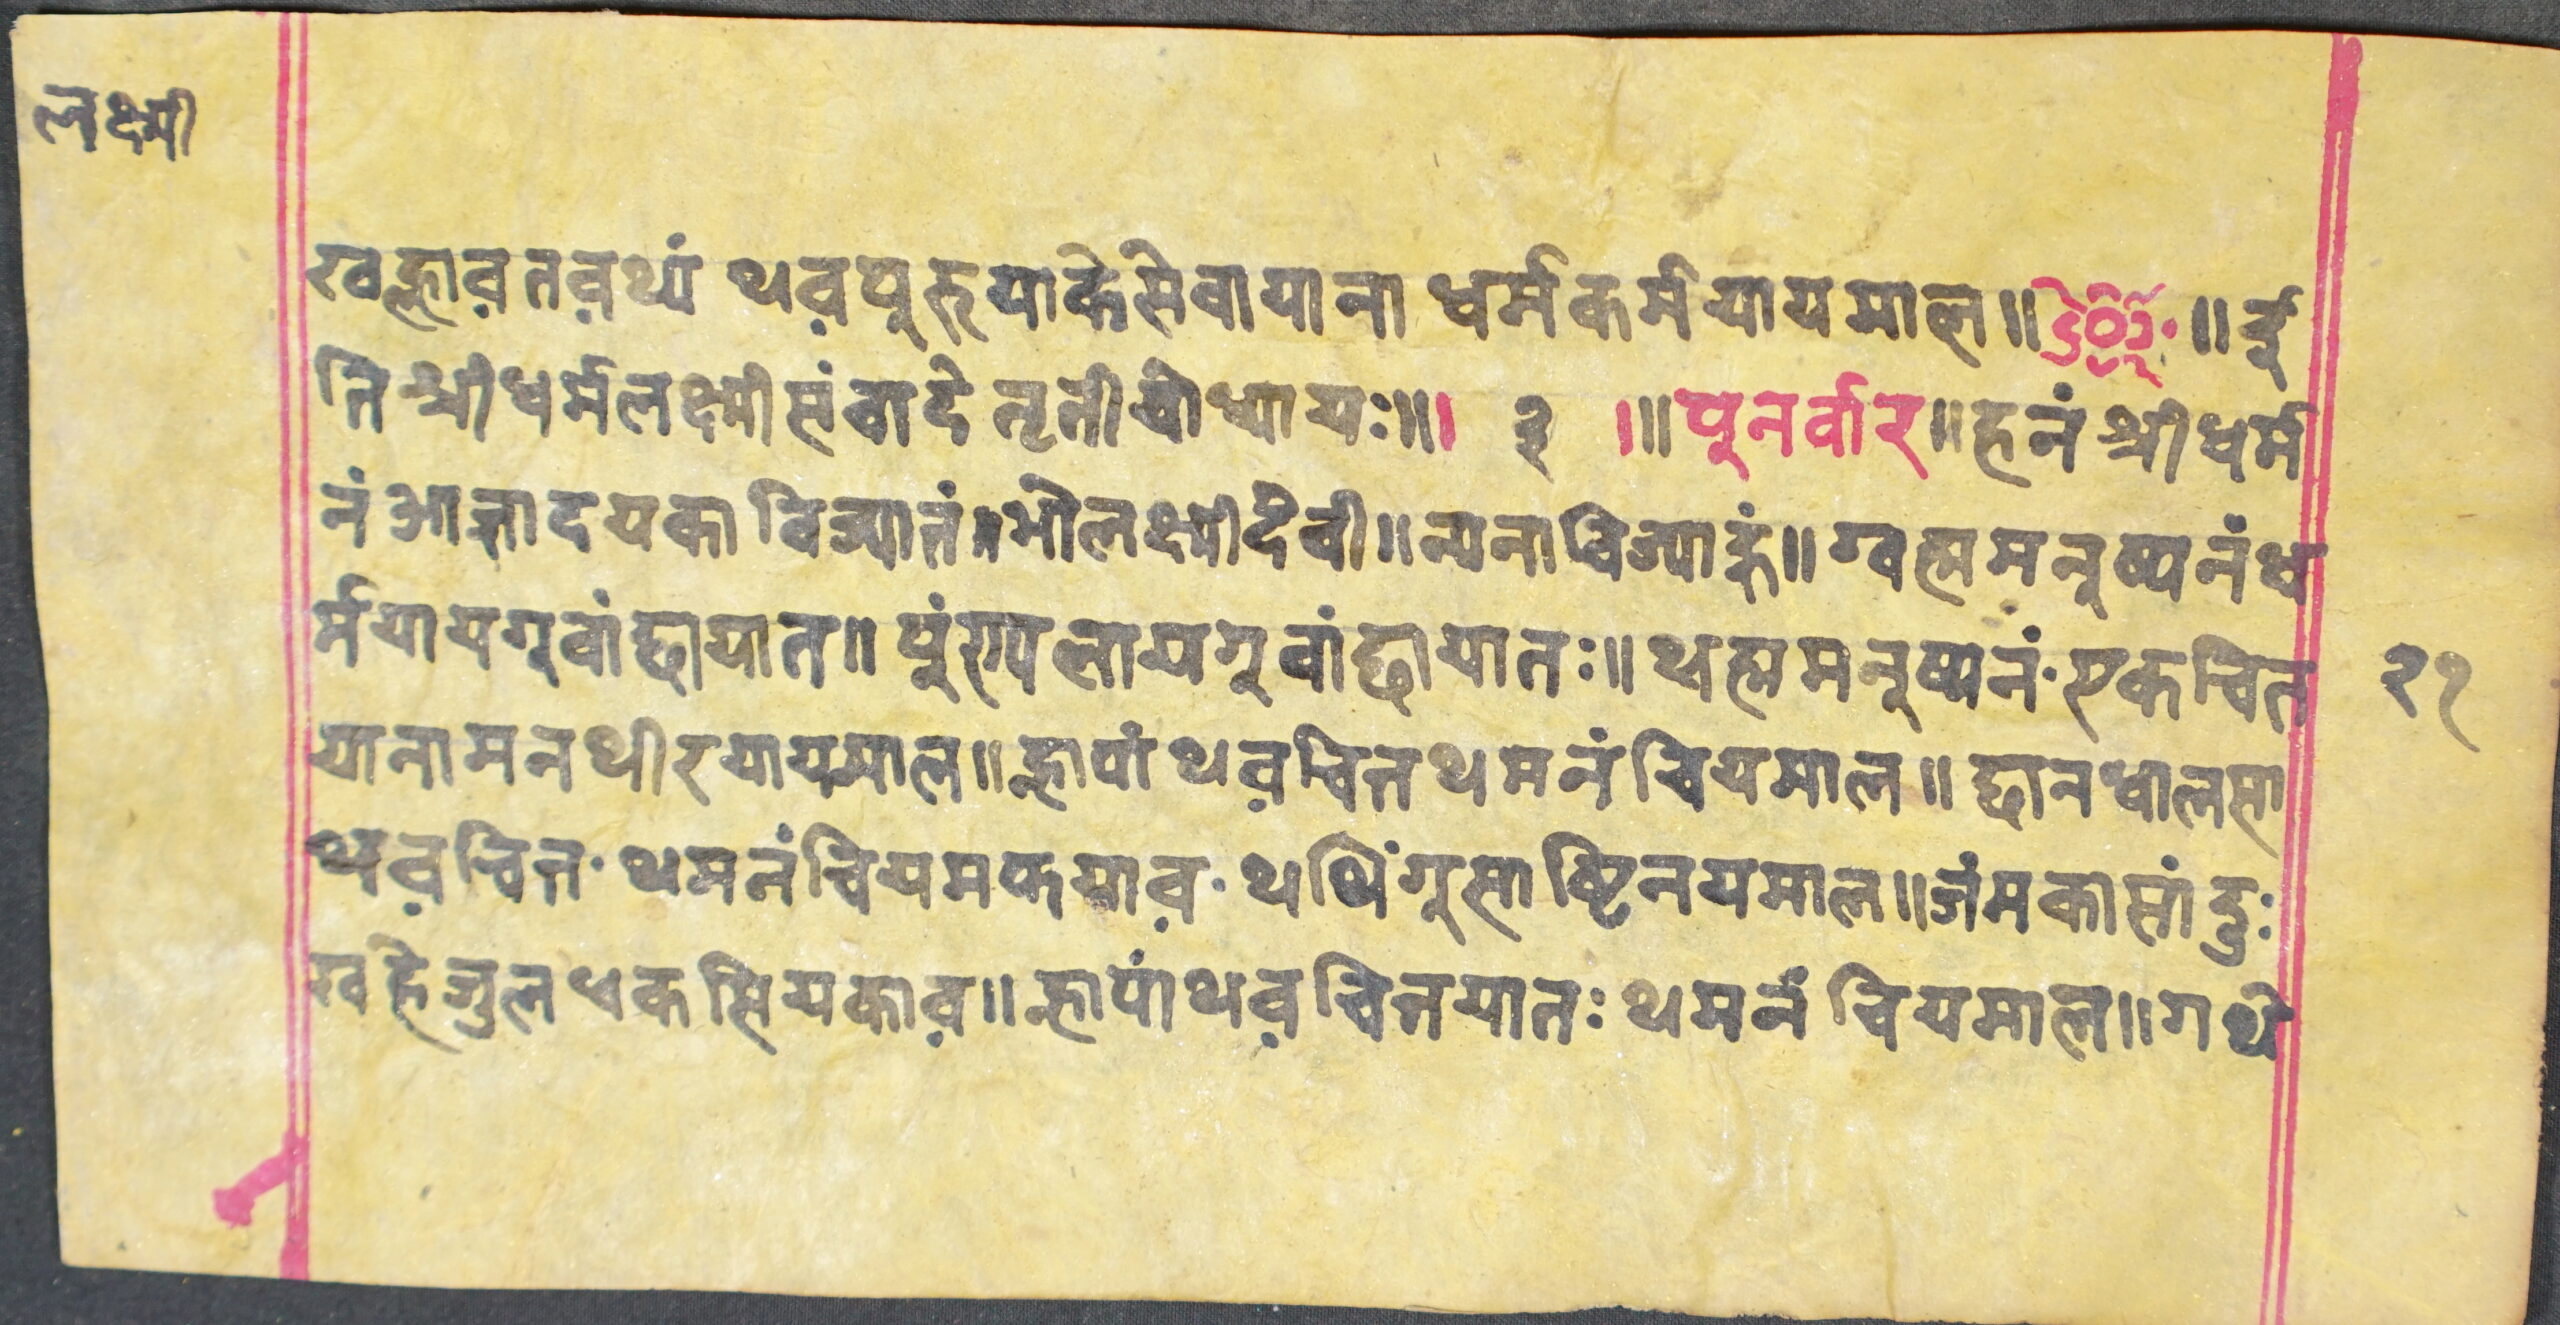 लक्ष्मी
खह्लाव़तव़थ्यं थव़पूरुयाकेसेवायाना धर्मकर्मयायमाल॥ ॥इ
ति श्रीधर्मलक्ष्मीसंवादे तृतीयोध्यायः॥। ३ ।॥पूनर्वार॥हनं श्रीधर्म
नं आज्ञादयका विज्यातं॥भोलक्ष्मीदेवी॥न्यनाविज्याहुं॥ग्वह्ममनूष्यनंध
र्मयायगूवांछायात॥पूंण्यलायगूवांछायातः॥थह्ममनूष्यनं·एकचित
यानामनथीरयायमाल॥ह्लापां थव़चित्तथमनं चियमाल॥छानधालसा
थव़चित्त·थमनंचियमफयाव़·थथिंगूसास्तिनयमाल॥जंमकासां दुः
खहेजुलधकसियकाव़॥ह्लापांथव़चित्तयातः थमनं चियमाल॥गथे
२१